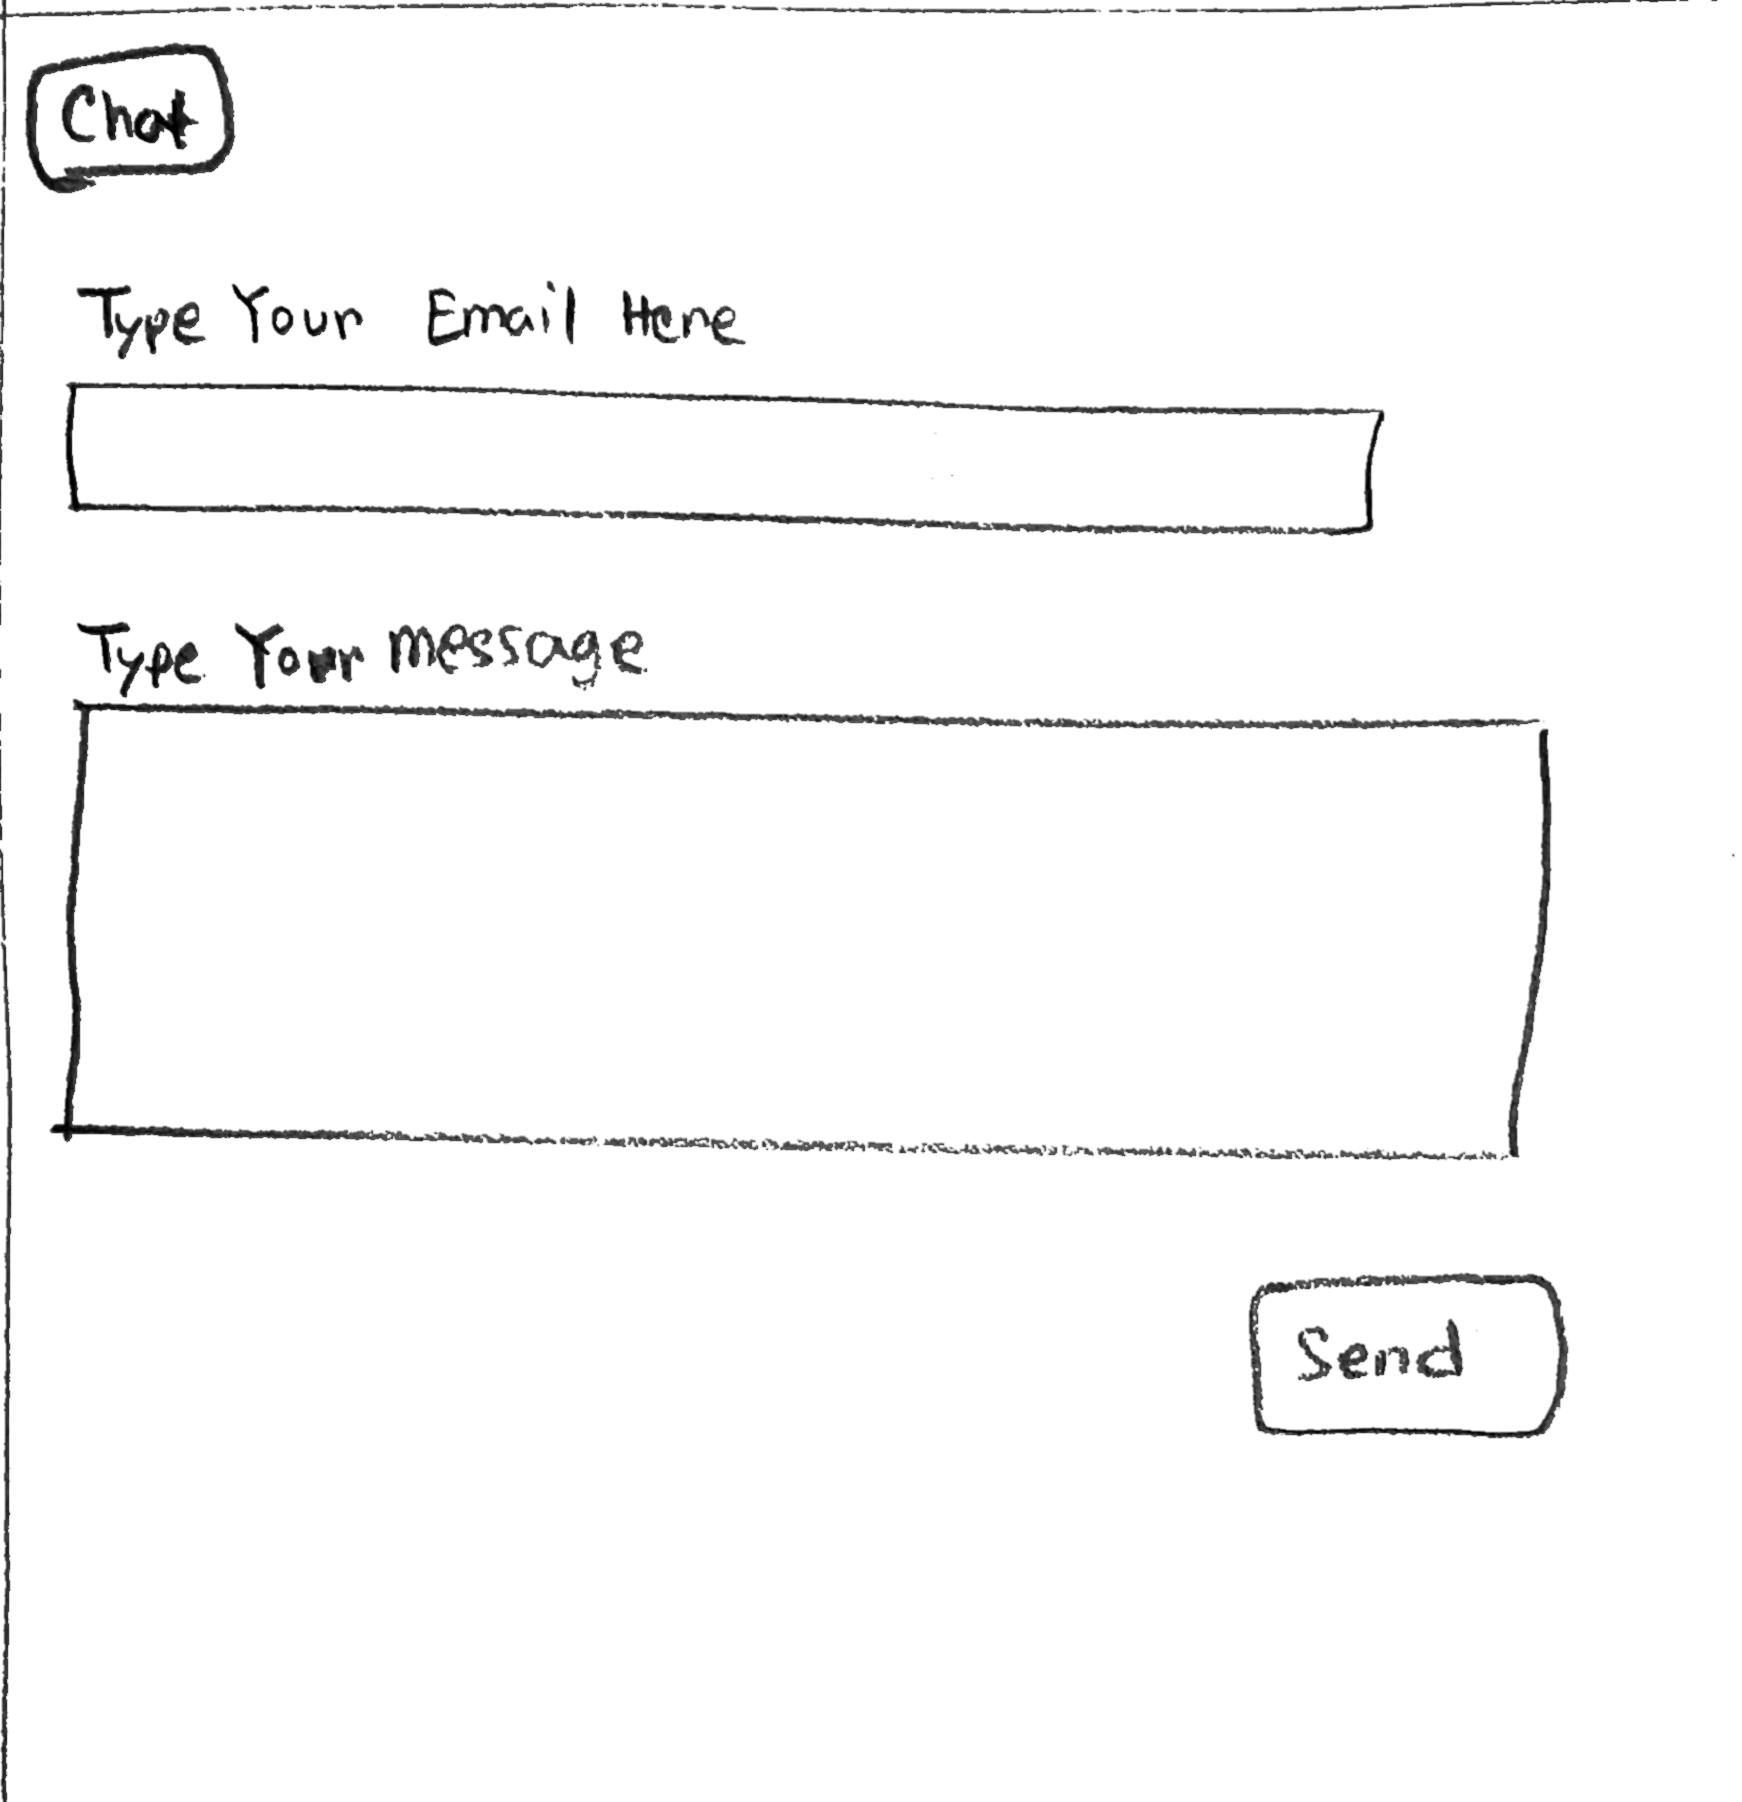 Chat
Type Your Email Here
Type Your message
Send